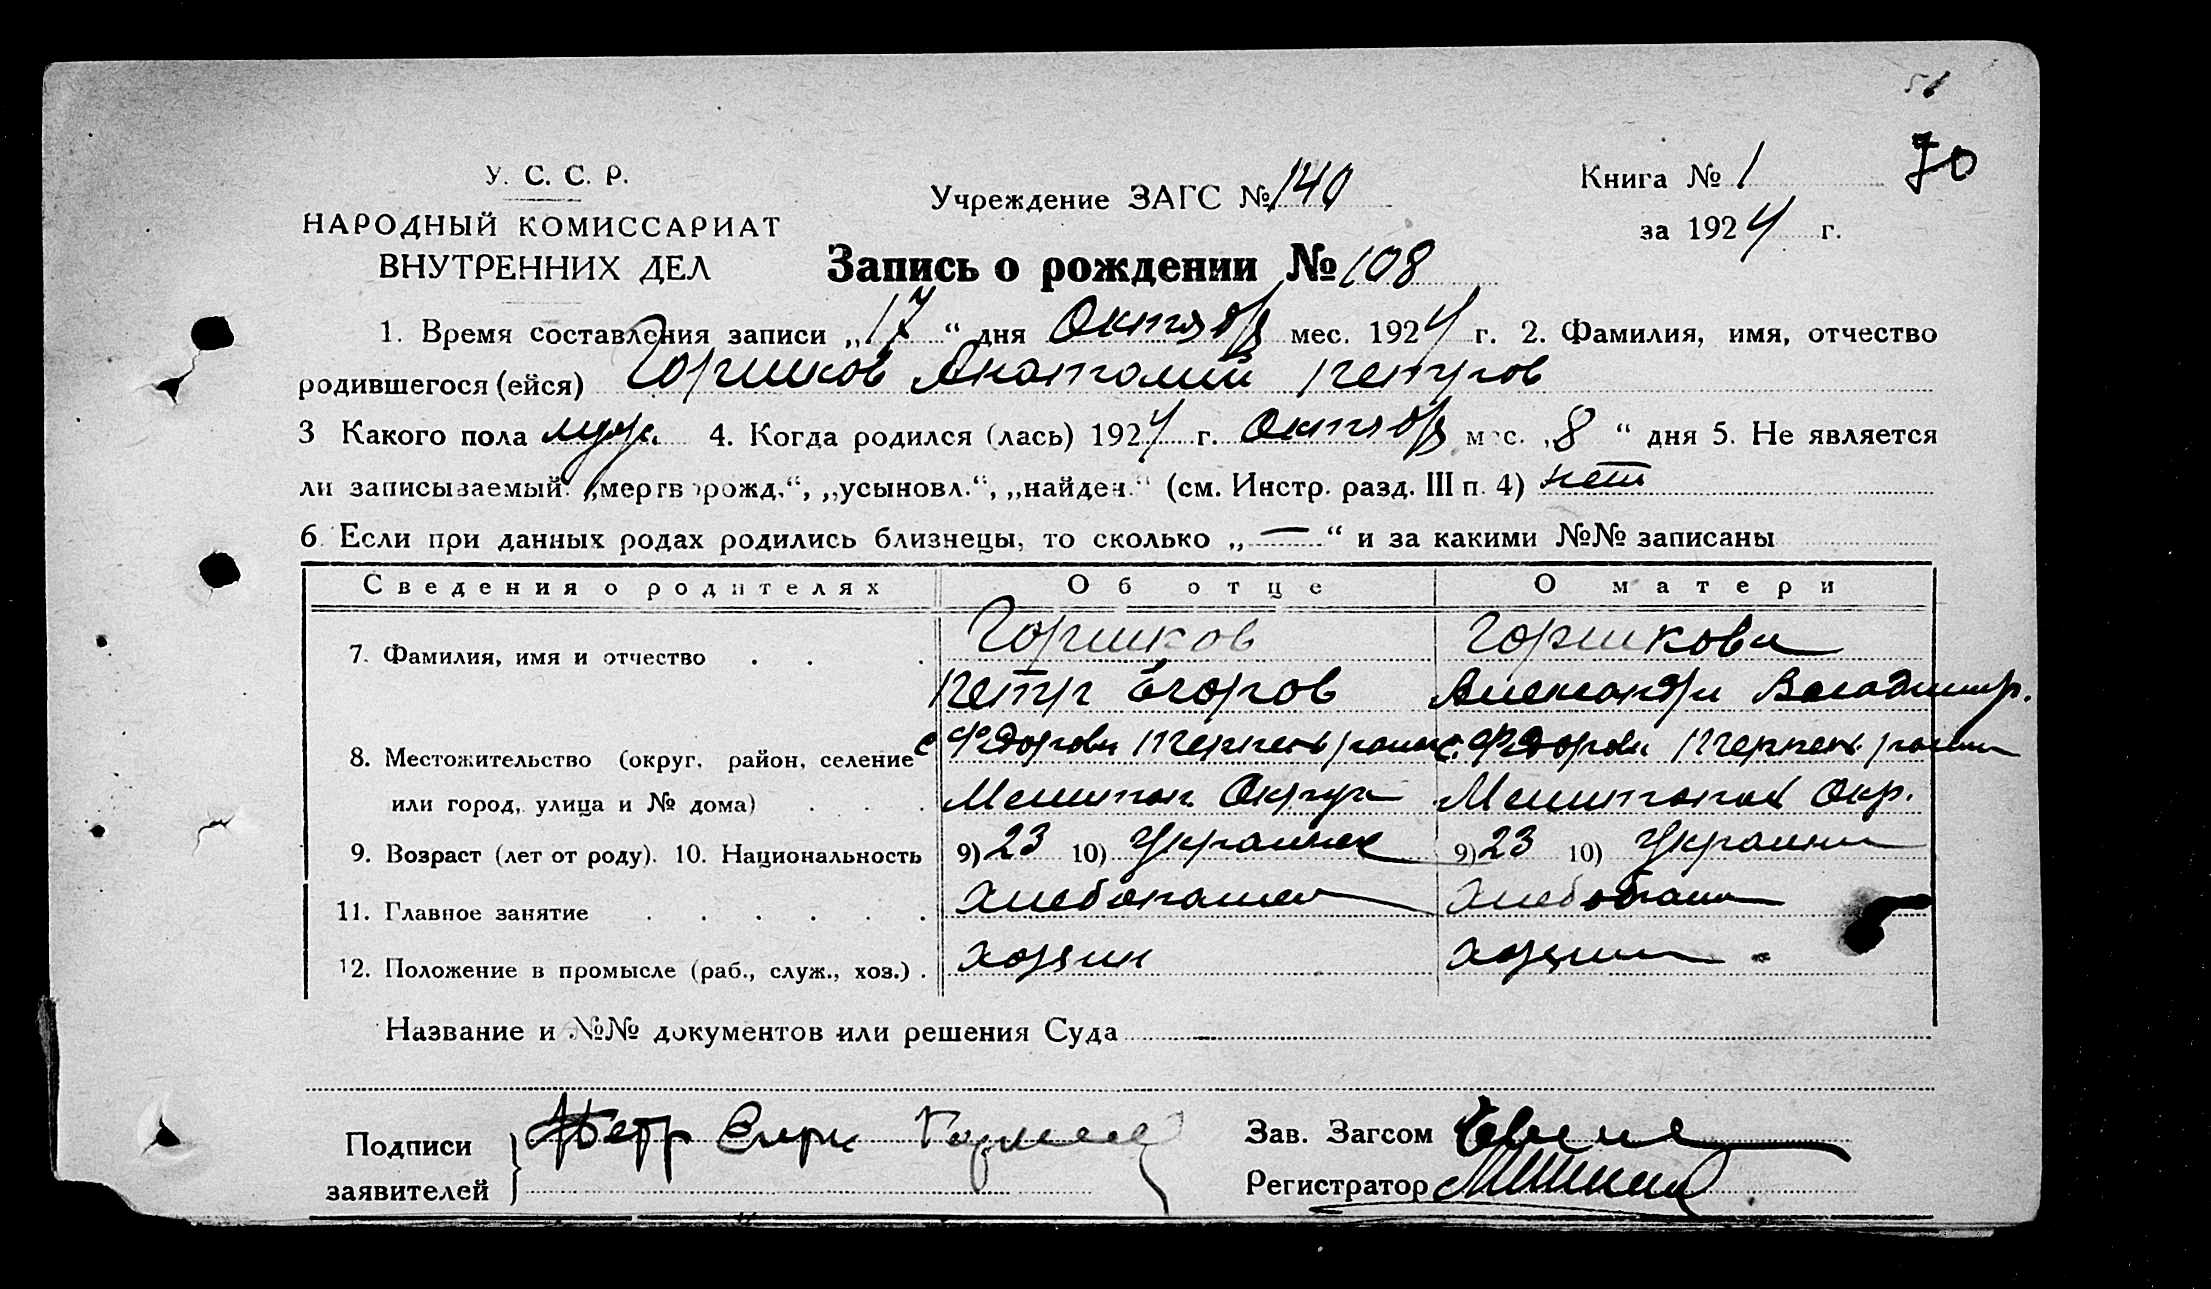 51
70
У. С. С. Р.
НАРОДНЫЙ КОМИССАРИАТ
ВНУТРЕННИХ ДЕЛ
Учреждение ЗАГС № 140
Книга № 1
за 1924 г.
Запись о рождении № 108
1. Время составления записи „17“ дня Октября мес. 1924 г. 2. Фамилия, имя, отчество
родившегося (ейся) Горшков Анатолий Петров
3 Какого пола муж. 4. Когда родился (лась) 1924 г. Октября мес. „8“ дня 5. Не является
ли записываемый: „мертворожд.“, „усыновл.“, „найден.“ (см. Инстр. разд. III п. 4) нет
6. Если при данных родах родились близнецы, то сколько „—“ и за какими №№ записаны
Сведения о родителях Об отце О матери
7. Фамилия, имя и отчество Горшков Горшкова
Петр Егоров Александра Владимир.
8. Местожительство (округ, район, селение с. Федоровка района с. Федоровка района
или город, улица и № дома) Мелитоп. Округа Мелитопол Окр.
9. Возраст (лет от роду). 10. Национальность 9) 23 10) Украинец 9) 23 10) Украинка
11. Главное занятие Хлебопашец Хлебопаш
12. Положение в промысле (раб., служ., хоз.) хозяин хозяин
Название и №№ документов или решения Суда —
Подписи заявителей Петр Горшков
Зав. Загсом
Регистратор